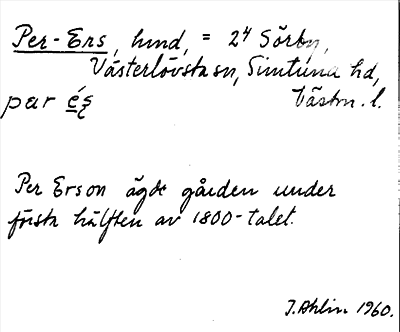 Per-Ers, hmd, = 2⁴ Sörby,
Västerlövsta sn, Simtuna hd,
par és Västm. l.
Per Erson ägde gården under
första hälften av 1800-talet.
J. Ahlin 1960.